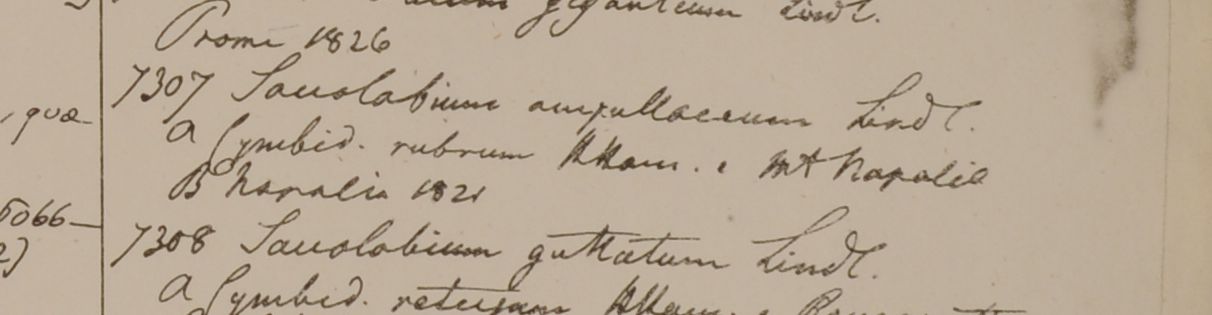 giganteum Lindl.
Prome 1826
7307 Saccolabium ampullaceum Lindl.
, quæ
a Cymbid. rubrum HHam. e Mt Napalia
B Napalia 1821
5066—
7308 Saccolabium guttatum Lindl.
2)
a Cymbid. retusum HHam. e